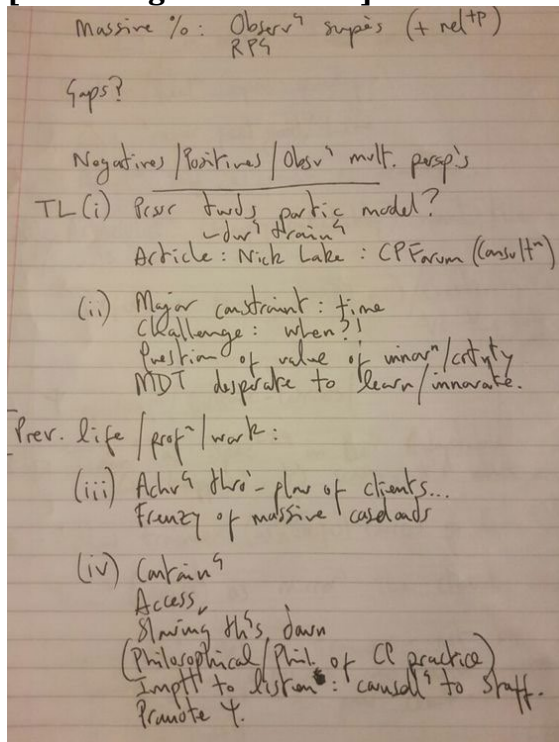 Massive %: Observ^g supès (+ rel^tp)
RPG
Gaps?
Negatives/Positives/Obsv^s mult. persp's
TL (i) Pressr twds partic model?
- dur^g train^g
Article: Nick Lake: CPForum (Consult^n)
(ii) Major constraint: time
Challenge: when?!
Question of value of innov^n/
MDT desperate to learn/innovate.
Prev. life/prof^n/work:
(iii) Achv^g thro'-flow of clients...
Frenzy of massive caseloads
(iv) Contain^g
Access
Slowing th^gs down
(Philosophical/Phil. of CP practice)
Imptt to listen: counsell^g to staff.
Promote Ψ.